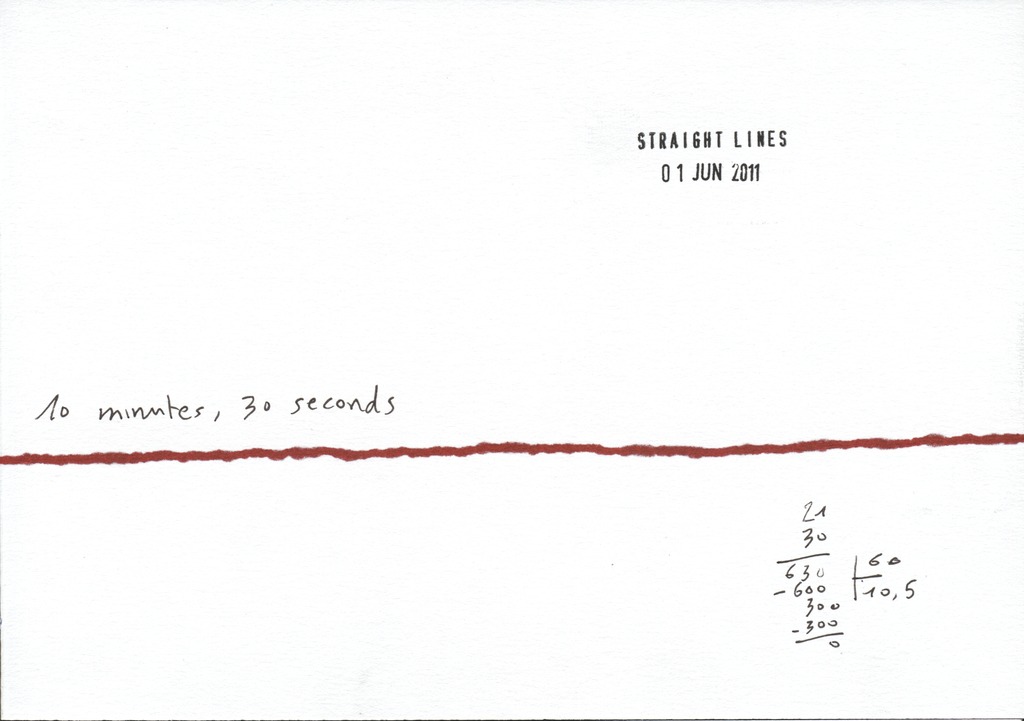 STRAIGHT LINES
01 JUN 2011
10 minutes, 30 seconds
21
30
630 60
-600 10,5
300
-300
0